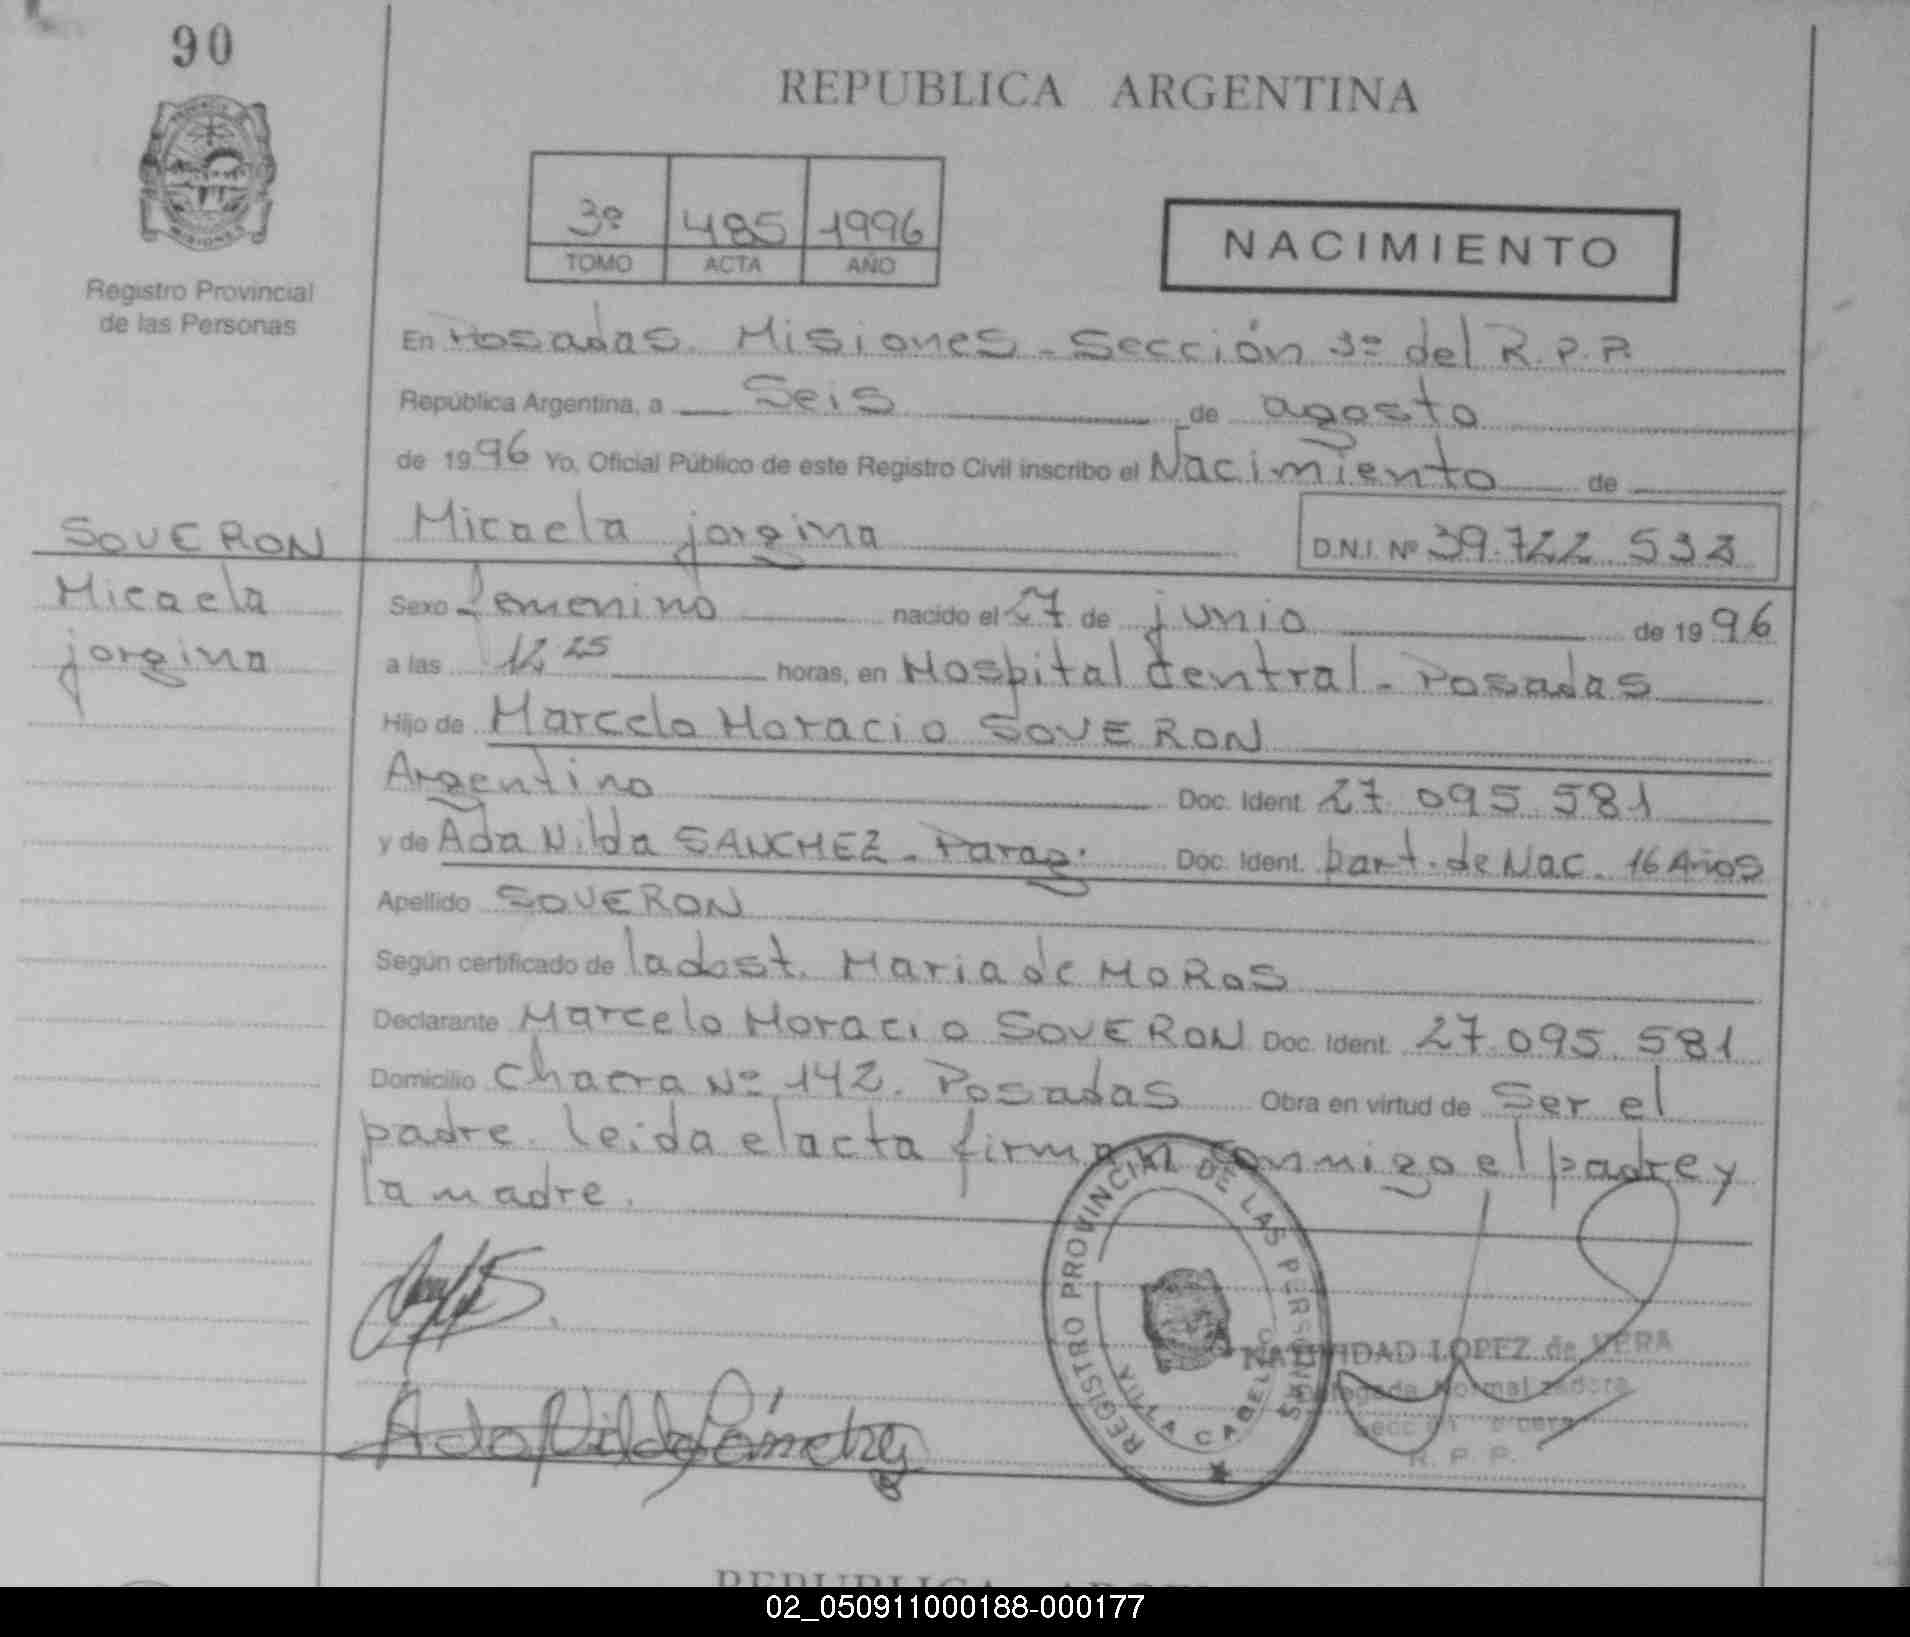 90
REPUBLICA ARGENTINA
3º 485 1996
TOMO ACTA AÑO
NACIMIENTO
MISIONES
Registro Provincial
de las Personas
En Posadas. Misiones - Sección 3º del R.P.P.
República Argentina, a Seis de agosto
de 1996 Yo, Oficial Público de este Registro Civil inscribo el Nacimiento de
Micaela jorgina D.N.I. Nº 39.722.533
SOVERON
Micaela
jorgina
Sexo femenino nacido el 27 de junio de 1996
a las 12 25 horas, en Hospital Central - Posadas
Hijo de Marcelo Horacio SOVERON
Argentino Doc. Ident. 27.095.581
y de Ada Nilda SANCHEZ - Parag. Doc. Ident. part. de Nac. 16 Años
Apellido SOVERON
Según certificado de la obst. Maria de MORAS
Declarante Marcelo Horacio SOVERON Doc. Ident. 27.095.581
Domicilio Chacra Nº 142. Posadas Obra en virtud de Ser el
padre. leida el acta firman conmigo el padre y
la madre.
REGISTRO PROVINCIAL DE LAS PERSONAS
VILLA CABELLO
NATIVIDAD LOPEZ de VERA
Delegada Normalizadora
R. P. P.
Ada Nilda
REPUBLICA
02_050911000188-000177